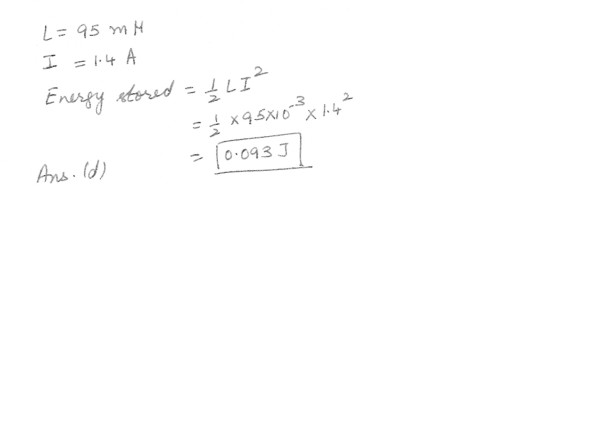 L = 95 mH
I = 1.4 A
Energy stored = 1/2 LI²
= 1/2 × 95×10⁻³ × 1.4²
= 0.093 J
Ans. (d)